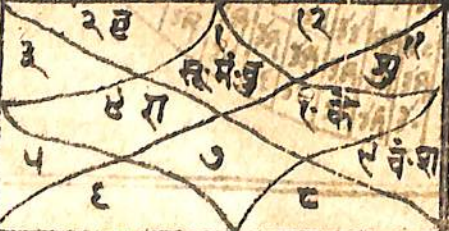 २ बृ १२
३ १ सू. मं. बु ११ शु
४ रा १० के
५ ७ ९ चं. श
६ ८